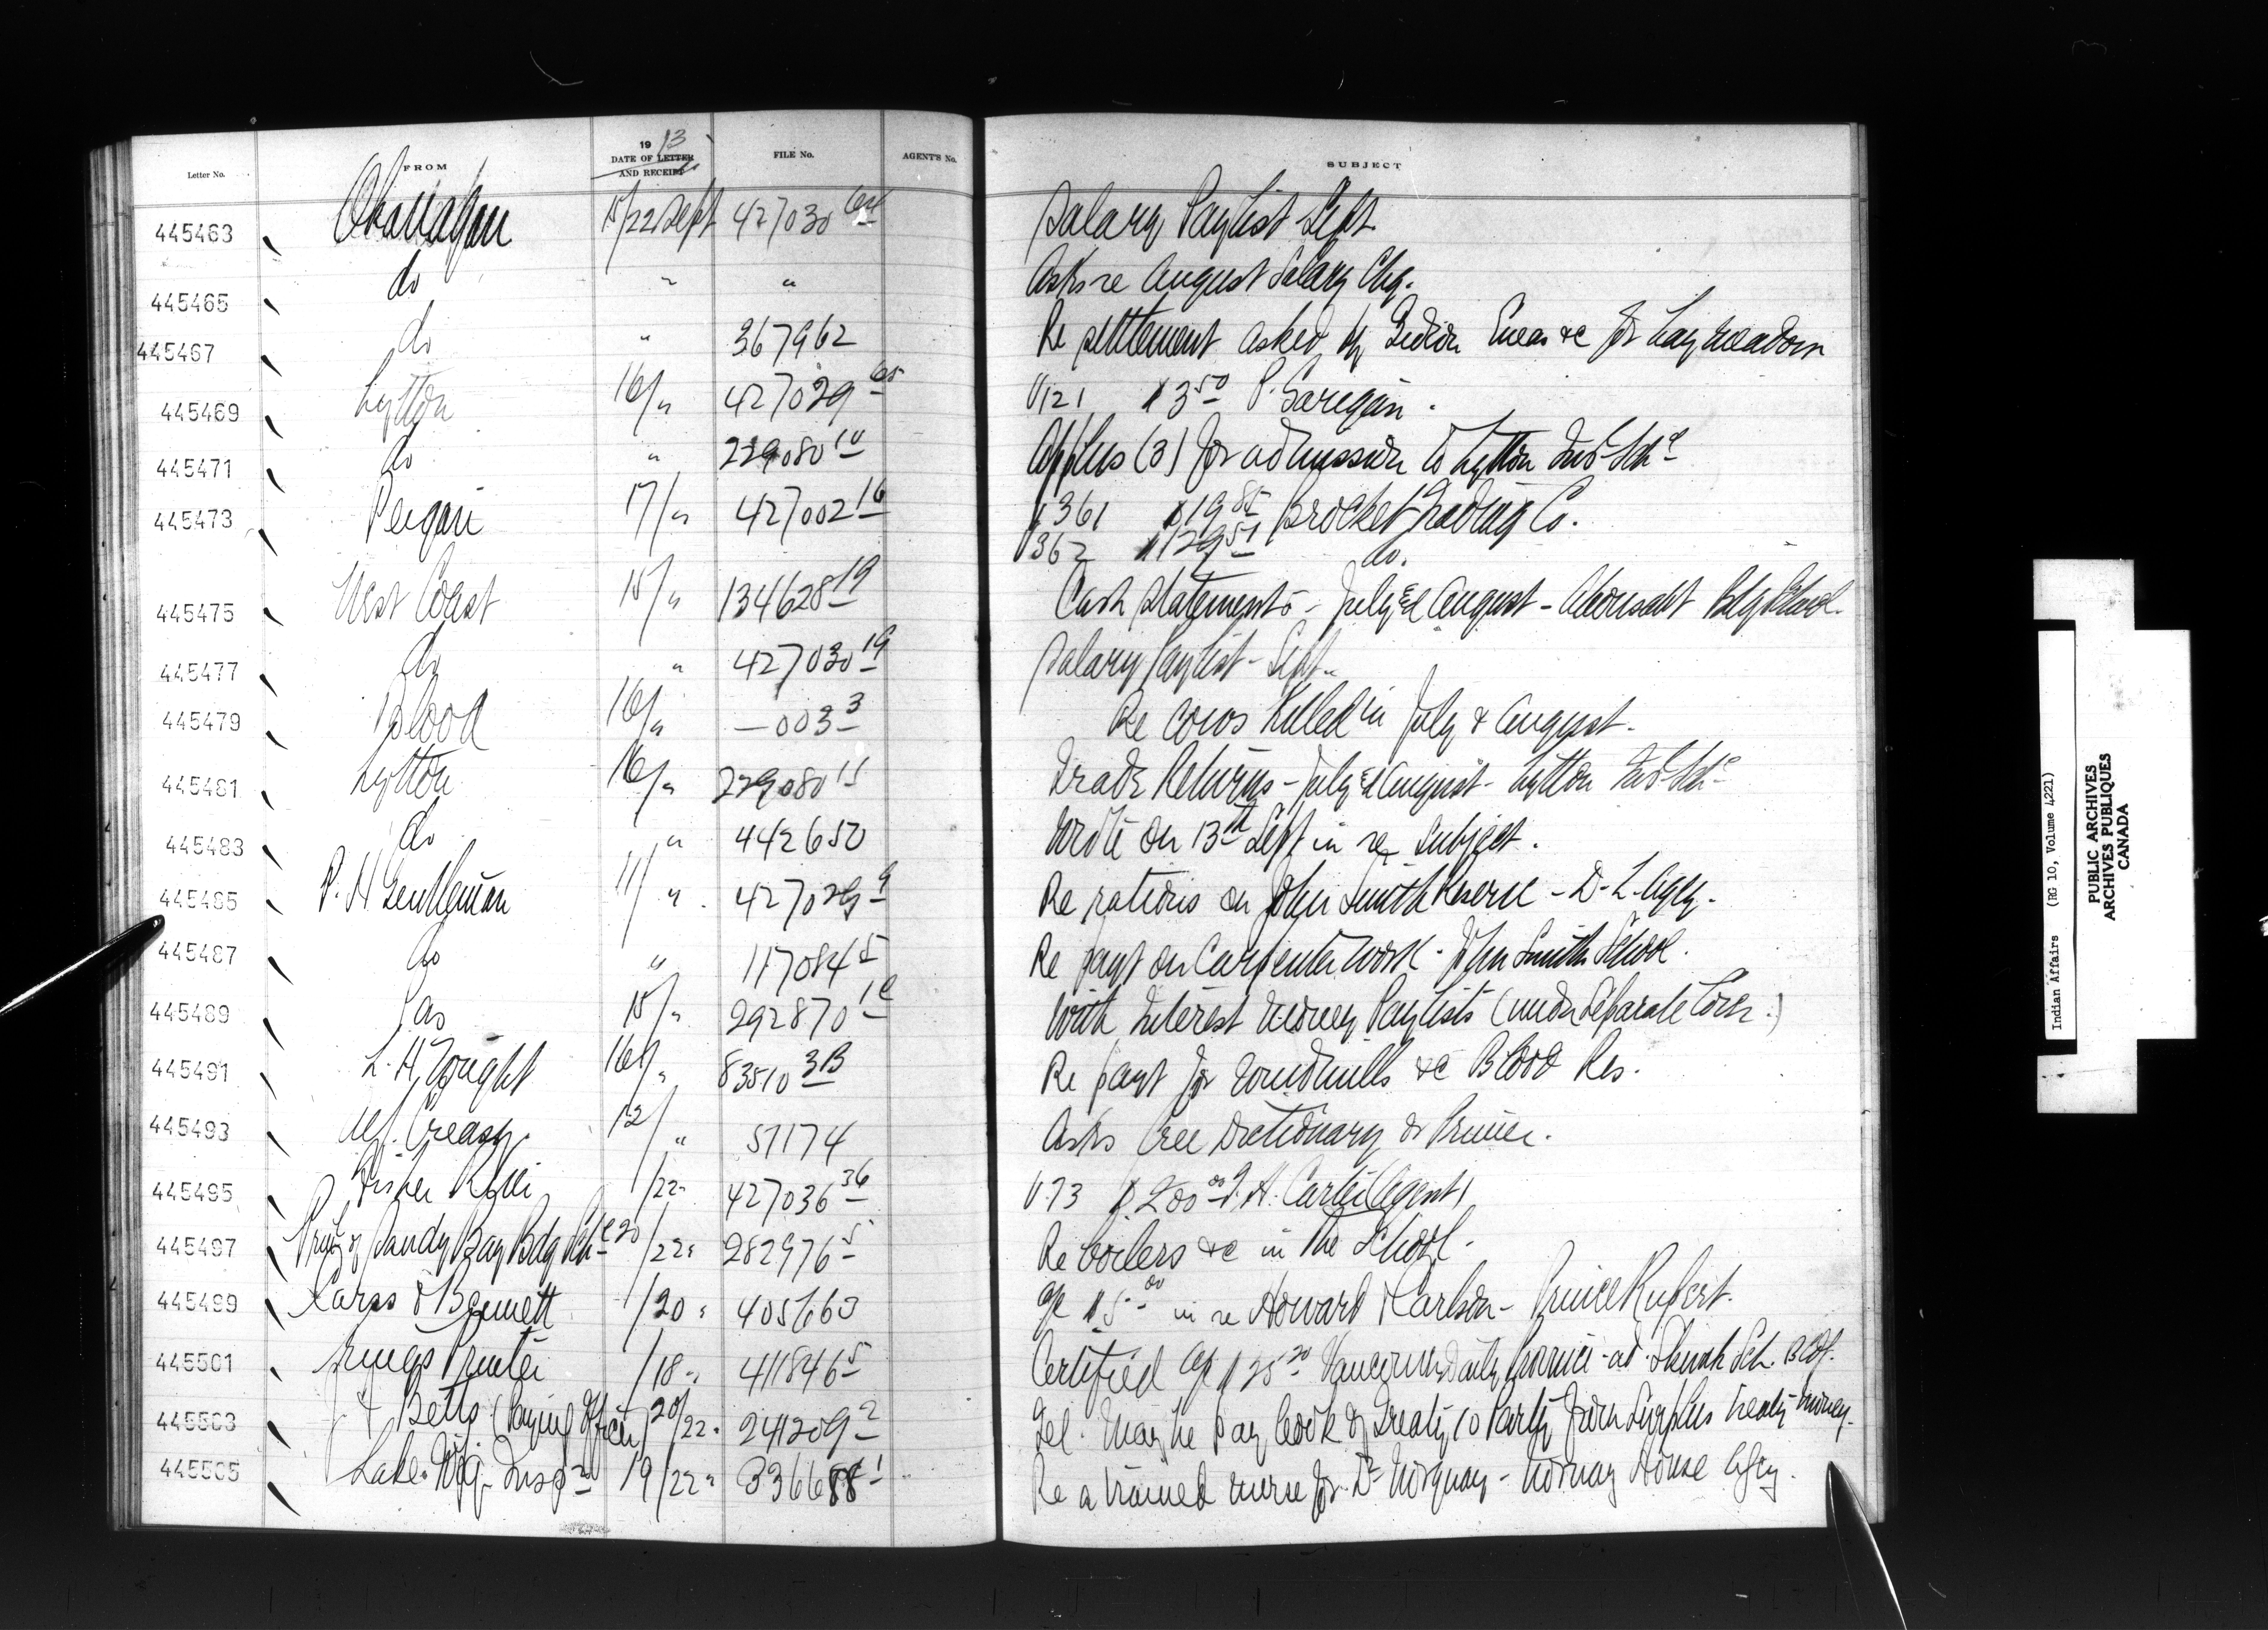 Letter No. FROM 19 13 DATE OF LETTER AND RECEIPT FILE No. AGENT'S No. SUBJECT
445463 Okanagan 15/22 Sept 427030 Salary Paylist Sept.
445465 do " " Asks re August Salary Chq.
445467 do " 367962 Re settlement asked by Gideon Eneas &c for hay meadow
445469 Lytton 16/" 427029 V121 $3.50 P.
445471 do " 229080 10 Applns (3) for admission to Lytton Ind. Schl
445473 Peigan 17/" 427002 16 V361 $19.85 Brocket Trading Co.
V362 $129.51 do.
445475 West Coast 15/" 134628 19 Cash Statements - July & August - Ahousaht Bdg School
445477 do " 427030 19 Salary Paylist - Sept.
445479 Blood 16/" —003 3 Re cows killed in July & August.
445481 Lytton 16/" 229080 11 Trade Returns - July & August - Lytton Ind. Schl
445483 do " 442650 Wrote on 13th Sept in re subject.
445485 P. H. Gentleman 11/" 427029 9 Re rations on John Smith Reserve - D. L. Agcy.
445487 do " 117084 5 Re payt on Carpenter work - John Smith School.
445489 Pas 15/" 292870 With Interest Money Paylists (under Separate Cover.)
445491 16/" 83510 3B Re payt for windmills &c Blood Res.
445493 Creasy. 12/" 57174 Asks Cree Dictionary or Primer.
445495 Fisher River /22" 427036 36 V.73 $200.00 T. H. Carter (Agent)
445497 Sandy Bay Bdg Schl 20/22" 282976 5 Re boilers &c in the School.
445499 Carss & Bennett /20" 405663 a/c $5.00 in re Howard & Carlson - Prince Rupert.
445501 Kings Printer /18" 411846 5 Certified a/c $25.20 Vancouver Daily Province - ad. Sch. Bldg.
445503 Betts (Paying Officer) 20/22" 241209 2 Tel. May he pay Cook of Treaty 10 Party from Surplus treaty money.
445505 Lake Wpg. Inspn 19/22" 336688 1 Re a trained nurse for Dr Norquay - Norway House Agcy.
Indian Affairs (RG 10, Volume 4221)
PUBLIC ARCHIVES
ARCHIVES PUBLIQUES
CANADA